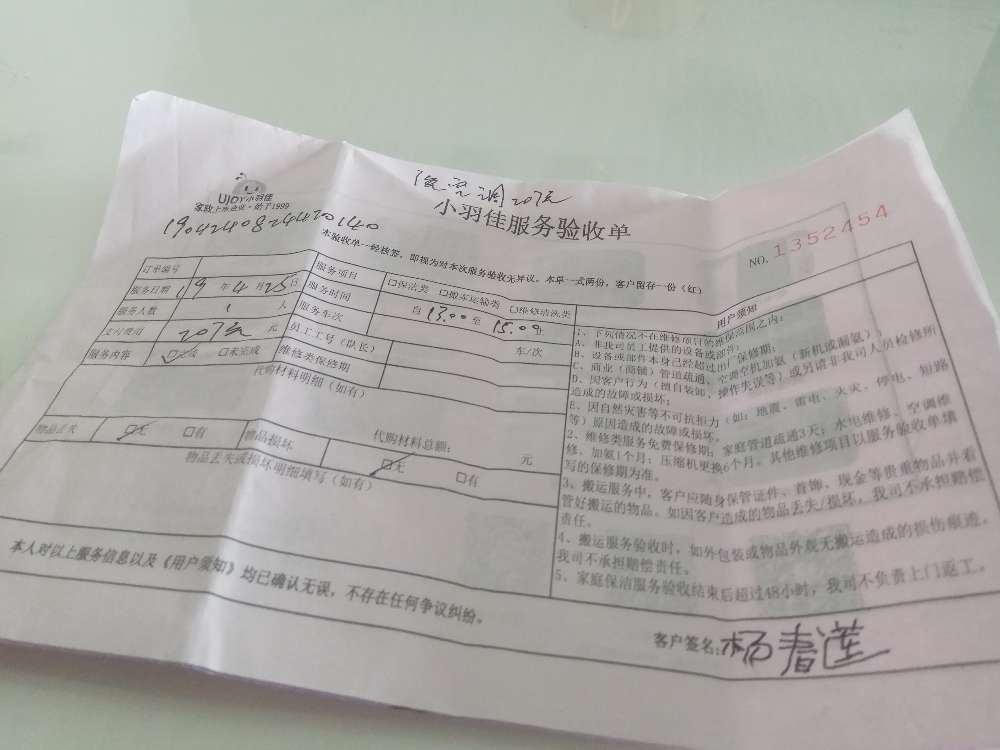 UJOY小羽佳
家政上市企业·始于1999
空调207元
小羽佳服务验收单
NO. 1352454
本验收单一经核签,即视为对本次服务验收无异议。本单一式两份,客户留存一份(红)
订单编号
服务日期 19年4月25日
服务人数 1人
支付费用 207元 元
服务内容 ☑完成 □未完成
服务项目 □保洁类 □搬家运输类 □维修清洗类
服务时间 自13.00至15.00
服务车次 车/次
员工工号(队长)
维修类保修期
代购材料明细(如有)
代购材料总额: 元
物品丢失 ☑无 □有
物品损坏 ☑无 □有
物品丢失或损坏明细填写(如有)
用户须知
1、下列情况不在维修项目的维保范围之内:
A、非我司员工提供的设备或部件;
B、设备或部件本身已经超过出厂保修期;
C、商业(商铺)管道疏通、空调空机加氨(新机或漏氨);
D、因客户行为(擅自装卸、操作失误等)或另请非我司人员检修所
造成的故障或损坏;
E、因自然灾害等不可抗拒力(如:地震、雷电、火灾、停电、短路
等)原因造成的故障或损坏。
2、维修类服务免费保修期:家庭管道疏通3天;水电维修、空调维
修、加氨1个月;压缩机更换6个月。其他维修项目以服务验收单填
写的保修期为准。
3、搬运服务中,客户应随身保管证件、首饰、现金等贵重物品并看
管好搬运的物品。如因客户造成的物品丢失/损坏,我司不承担赔偿
责任。
4、搬运服务验收时,如外包装或物品外观无搬运造成的损伤痕迹,
我司不承担赔偿责任。
5、家庭保洁服务验收结束后超过48小时,我司不负责上门返工。
本人对以上服务信息以及《用户须知》均已确认无误,不存在任何争议纠纷。
客户签名:杨春莲